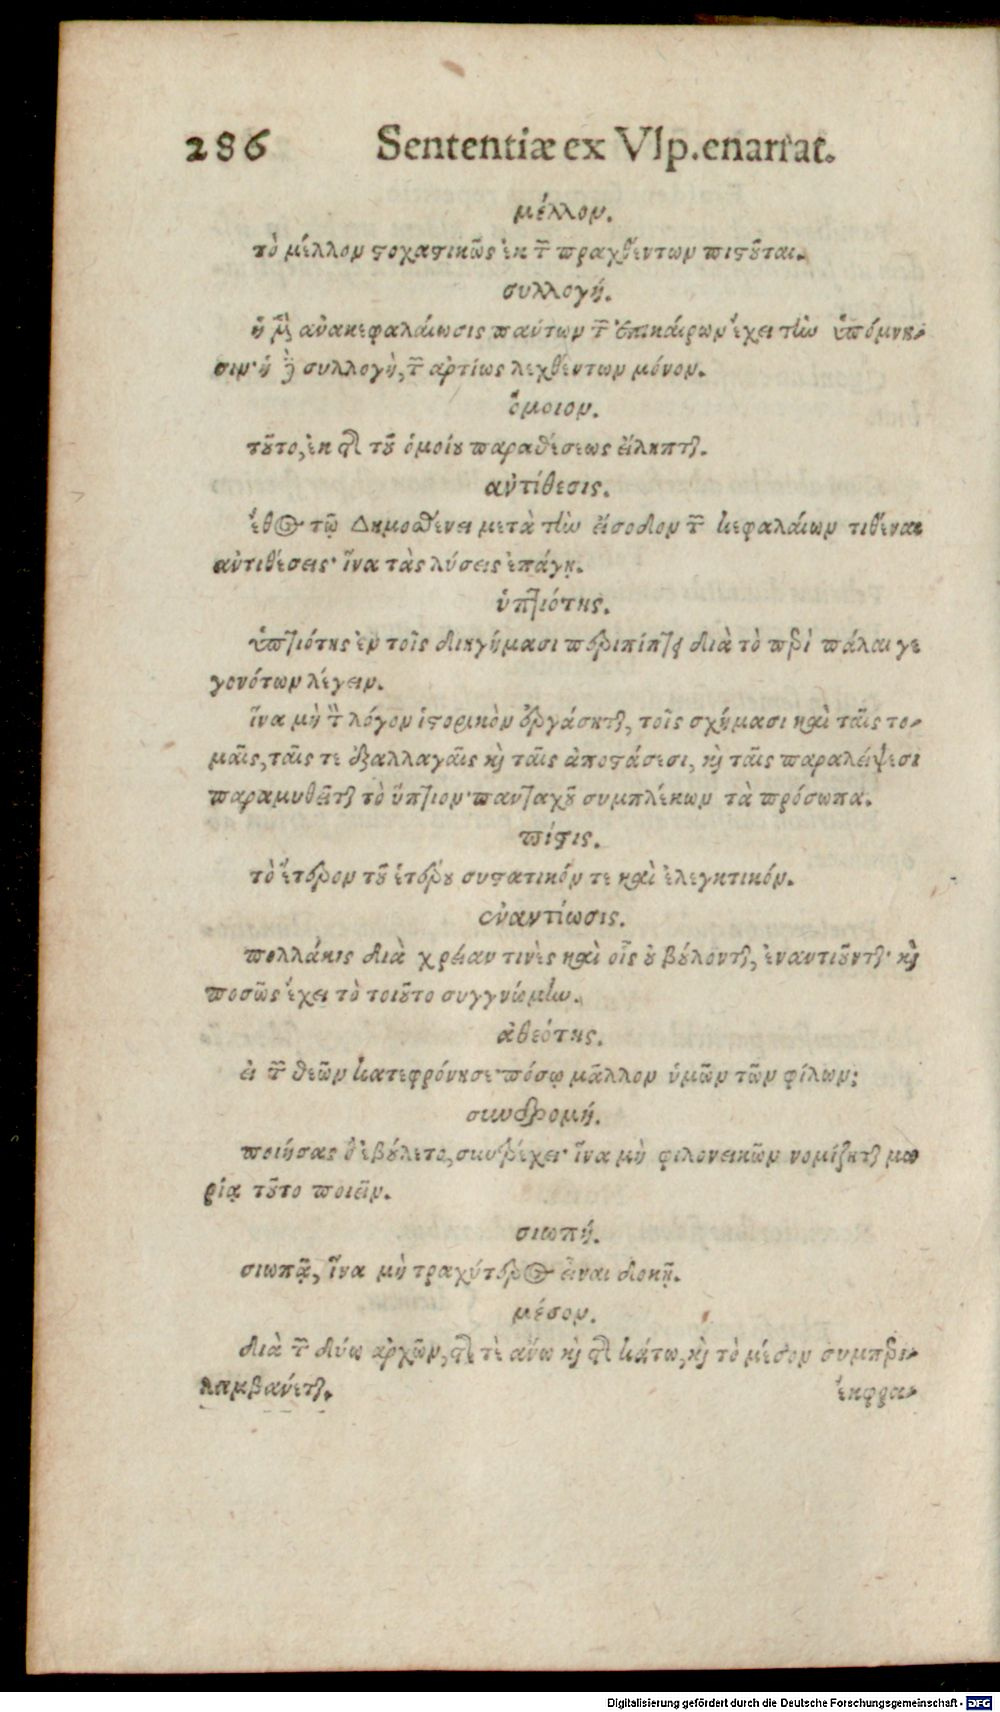 286 Sententiæ ex Vlp.enarrat.
μέλλον.
τὸ μέλλον ϛοχαϛικῶς ἐκ τῶν πραχθέντων πιϛοῦται.
συλλογή.
ἡ μὲν ἀνακεφαλαίωσις πάντων τῶν ἐπικαίρων ἔχει τὴν ὑπόμνη-
σιν· ἡ δὲ συλλογὴ, τῶν ἀρτίως λεχθέντων μόνον.
ὅμοιον.
τοῦτο, ἐκ τῆς τοῦ ὁμοίου παραθέσεως εἴληπται.
ἀντίθεσις.
ἔθος τῷ Δημοσθένει μετὰ τὴν εἴσοδον τῶν κεφαλαίων τιθέναι
ἀντιθέσεις· ἵνα τὰς λύσεις ἐπάγῃ.
ὑπτιότης.
ὑπτιότης ἐν τοῖς διηγήμασι περιπίπτει διὰ τὸ περὶ πάλαι γε
γονότων λέγειν.
ἵνα μὴ τὸν λόγον ἱϛορικὸν ἐργάσηται, τοῖς σχήμασι καὶ ταῖς το-
μαῖς, ταῖς τε ἐξαλλαγαῖς καὶ ταῖς ἀποϛάσεσι, καὶ ταῖς παραλείψεσι
παραμυθεῖται τὸ ὕπτιον· πανταχοῦ συμπλέκων τὰ πρόσωπα.
πίϛις.
τὸ ἕτερον τοῦ ἑτέρου συϛατικόν τε καὶ ἐλεγκτικόν.
ἐναντίωσις.
πολλάκις διὰ χρείαν τινὲς καὶ οἷς οὐ βούλονται, ἐναντιοῦνται· καὶ
ποσῶς ἔχει τὸ τοιοῦτο συγγνώμην.
ἀθεότης.
εἰ τῶν θεῶν κατεφρόνησε· πόσῳ μᾶλλον ὑμῶν τῶν φίλων;
συνδρομή.
ποιήσας ὃ ἐβούλετο, συντρέχει· ἵνα μὴ φιλονεικῶν νομίζηται μω
ρίᾳ τοῦτο ποιεῖν.
σιωπή.
σιωπᾷ, ἵνα μὴ τραχύτερος εἶναι δοκῇ.
μέσον.
διὰ τῶν δύω ἀρχῶν, τῆς τὲ ἄνω καὶ τῆς κάτω, καὶ τὸ μέσον συμπερι-
λαμβάνεται.
ἔκφρα-
Digitalisierung gefördert durch die Deutsche Forschungsgemeinschaft - DFG